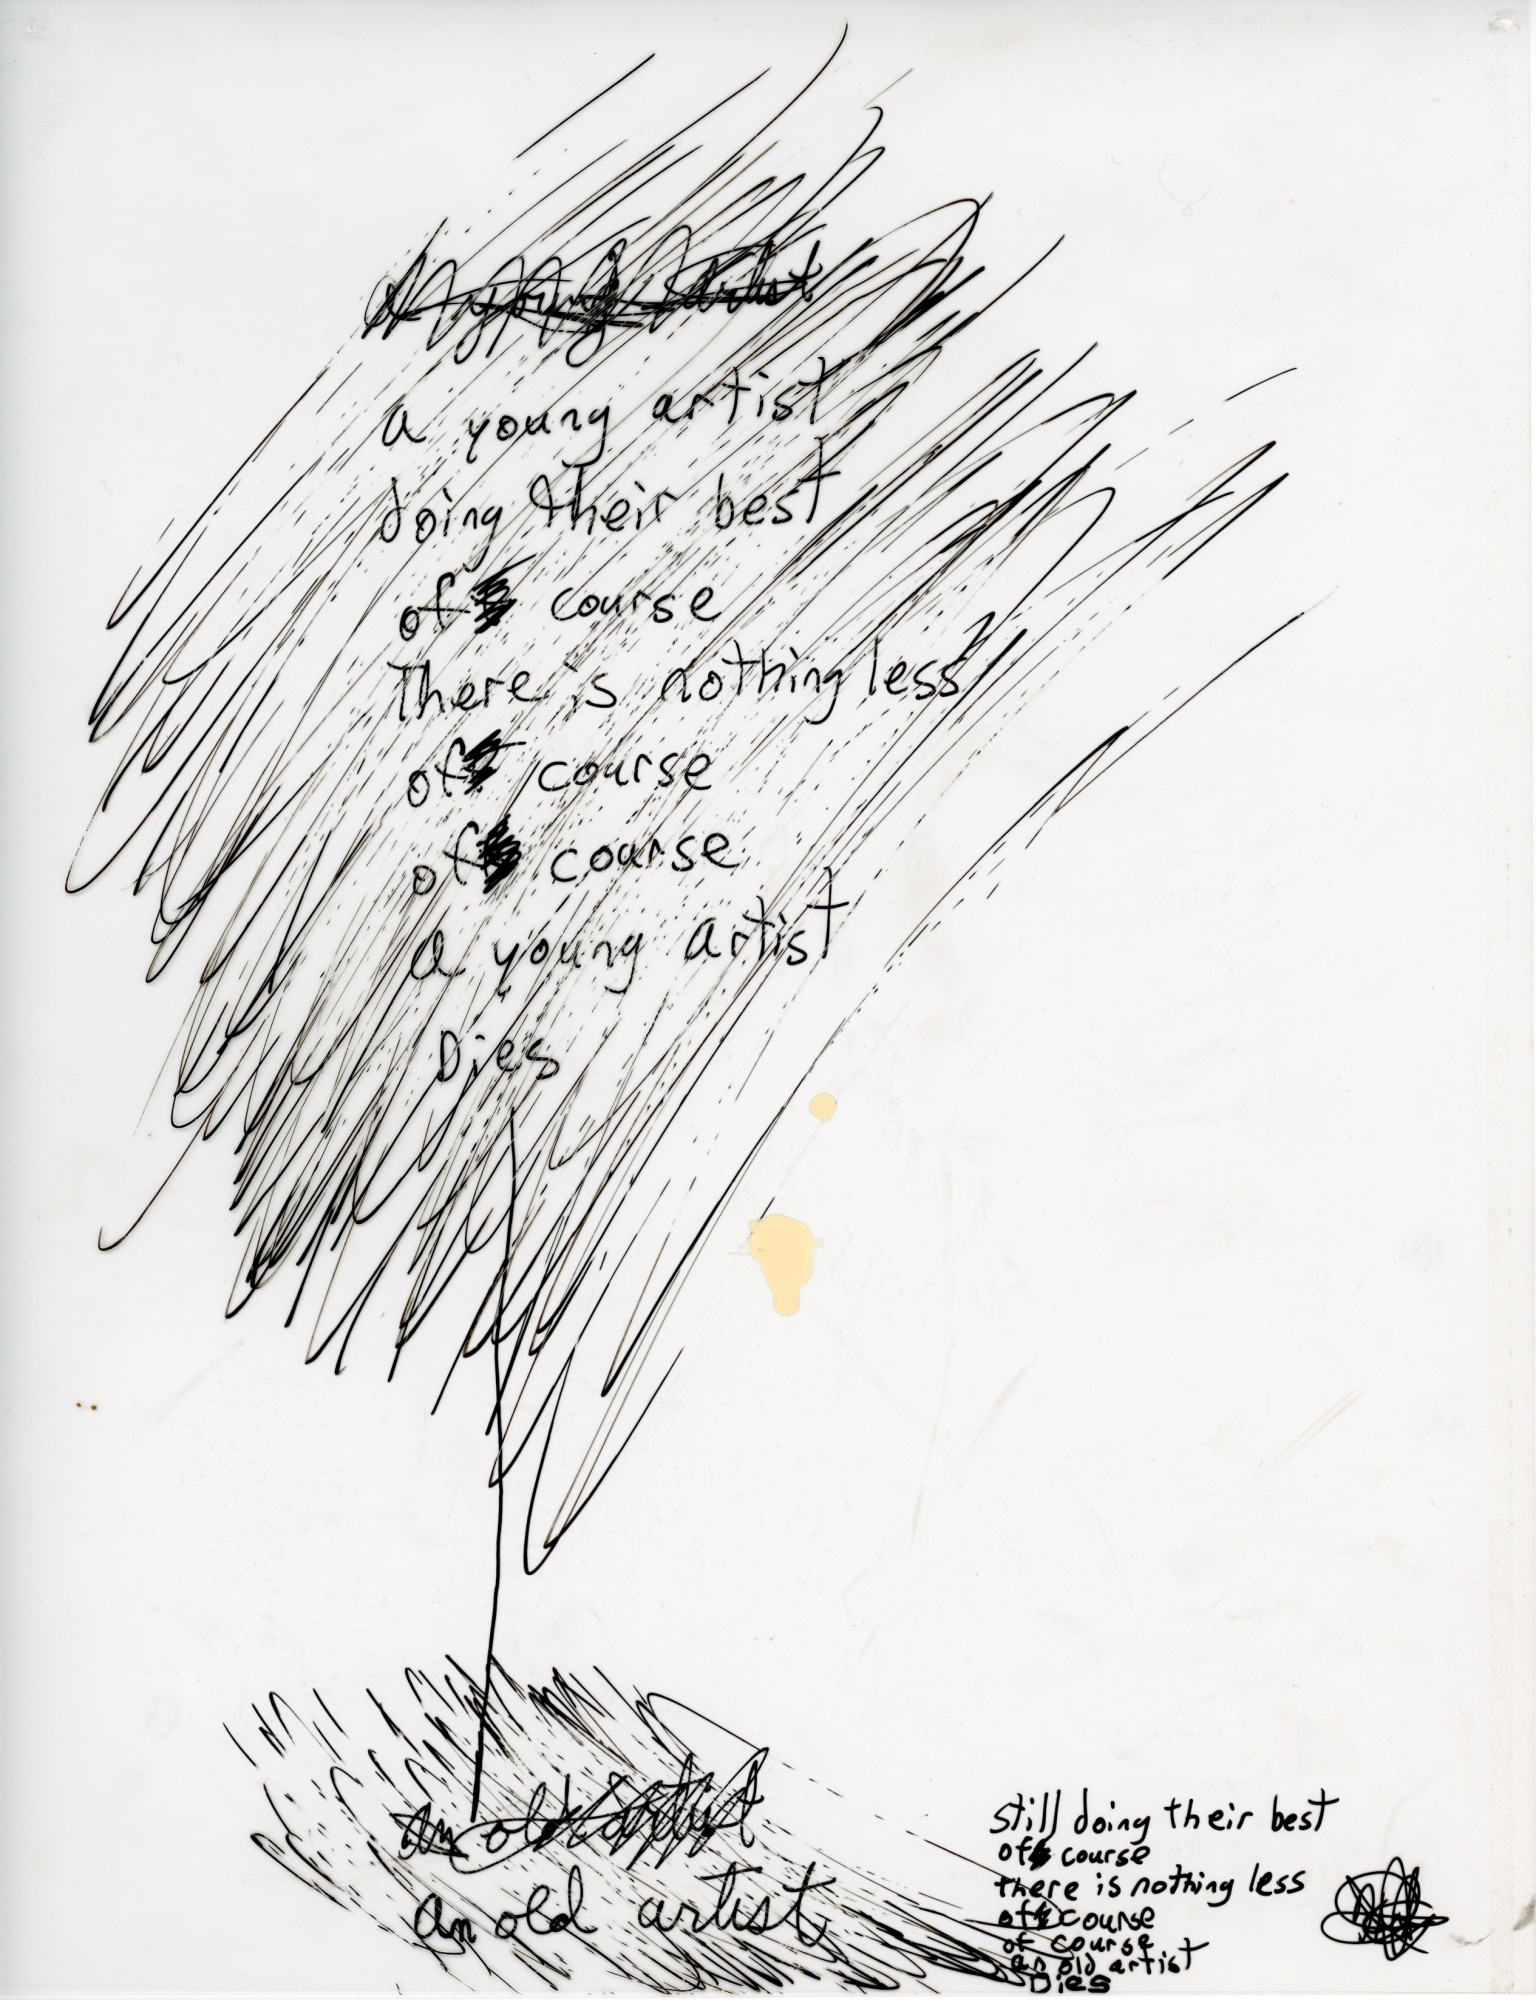 a young artist
a young artist
doing their best
of course
There is nothing less
of course
of course
a young artist
Dies
an old artist
an old artist
still doing their best
of course
there is nothing less
of course
of course
an old artist
Dies